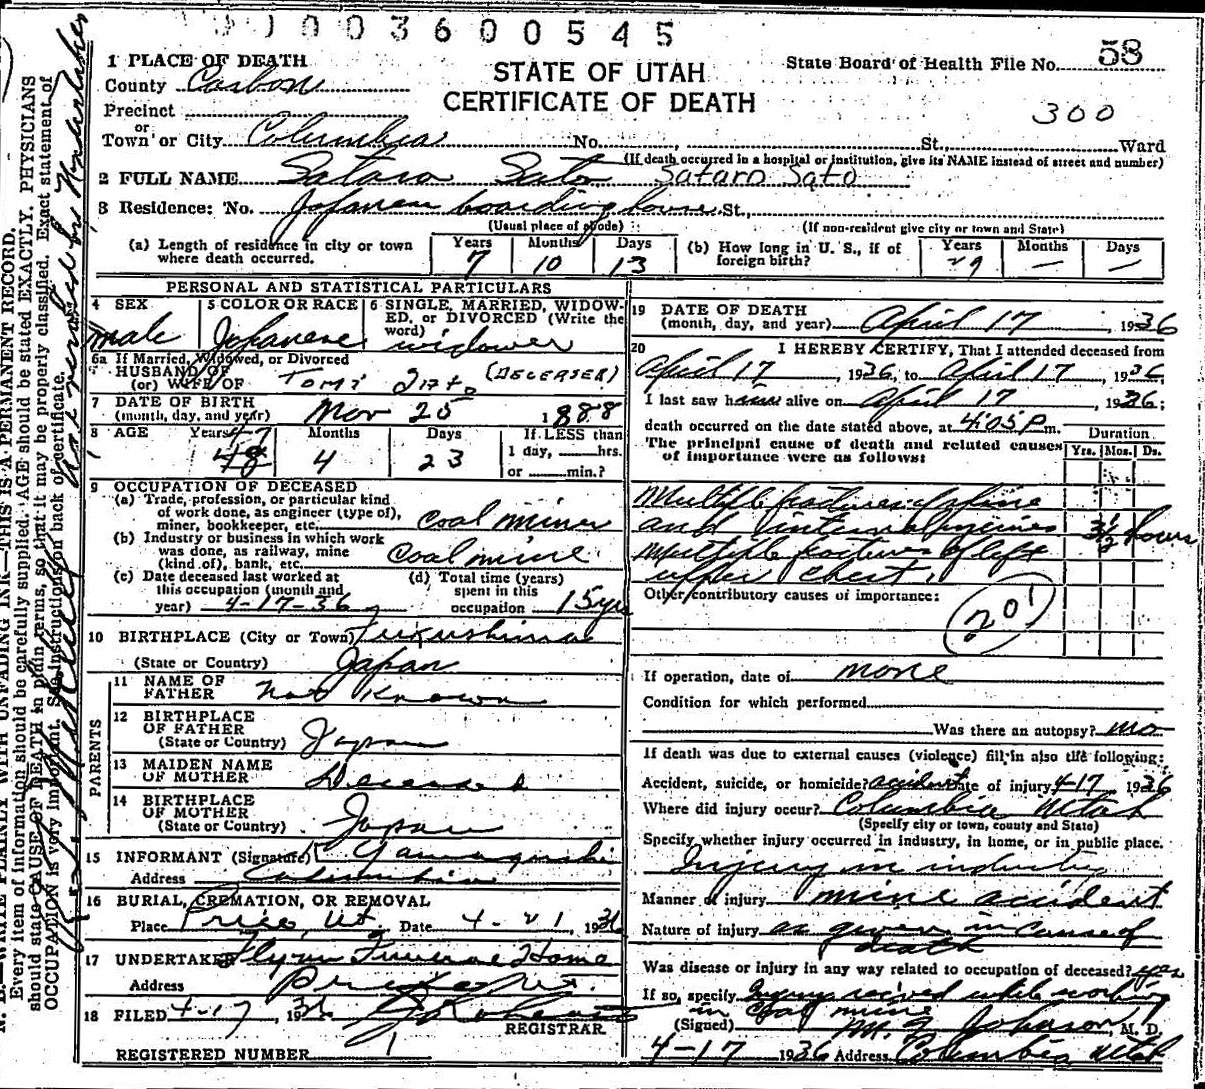 0 0 0 3 6 0 0 5 4 5
1 PLACE OF DEATH
STATE OF UTAH
CERTIFICATE OF DEATH
State Board of Health File No. 58
County Carbon
300
Precinct
or
Town or City Columbia No. , St., Ward
(If death occurred in a hospital or institution, give its NAME instead of street and number)
2 FULL NAME Sataro Sato Sataro Sato
3 Residence: No. Japanese boarding house St.,
(Usual place of abode) (If non-resident give city or town and State)
(a) Length of residence in city or town where death occurred. Years 7 Months 10 Days 13
(b) How long in U. S., if of foreign birth? Years 29 Months — Days —
PERSONAL AND STATISTICAL PARTICULARS
4 SEX male
5 COLOR OR RACE Japanese
6 SINGLE, MARRIED, WIDOWED, or DIVORCED (Write the word) widower
6a If Married, Widowed, or Divorced
HUSBAND OF
(or) WIFE OF Tomi Sato (DECEASED)
7 DATE OF BIRTH
(month, day, and year) Nov 25 1888
8 AGE Years 47 48 Months 4 Days 23
If LESS than
1 day, hrs.
or min.?
9 OCCUPATION OF DECEASED
(a) Trade, profession, or particular kind
of work done, as engineer (type of),
miner, bookkeeper, etc. coal miner
(b) Industry or business in which work
was done, as railway, mine
(kind of), bank, etc. Coal mine
(c) Date deceased last worked at
this occupation (month and
year) 4-17-36
(d) Total time (years)
spent in this
occupation 15 yrs
10 BIRTHPLACE (City or Town) Fukushima
(State or Country) Japan
PARENTS
11 NAME OF
FATHER Not Known
12 BIRTHPLACE
OF FATHER
(State or Country) Japan
13 MAIDEN NAME
OF MOTHER Deceased
14 BIRTHPLACE
OF MOTHER
(State or Country) Japan
15 INFORMANT (Signature)
Address Columbia
16 BURIAL, CREMATION, OR REMOVAL
Place Price, Ut. Date 4-21, 1936
17 UNDERTAKER Flynn Funeral Home
Address Price Ut.
18 FILED 4-17, 1936
REGISTRAR
REGISTERED NUMBER 1
19 DATE OF DEATH
(month, day, and year) April 17, 1936
20 I HEREBY CERTIFY, That I attended deceased from
April 17, 1936, to April 17, 1936;
I last saw him alive on April 17, 1936;
death occurred on the date stated above, at 4:05 P m.
The principal cause of death and related causes
of importance were as follows:
Duration
Yrs. Mos. Ds.
Multiple fractures of spine
and internal injuries 3½ hours
Multiple fractures of left
upper chest.
Other contributory causes of importance:
201
If operation, date of none
Condition for which performed
Was there an autopsy? no
If death was due to external causes (violence) fill in also the following:
Accident, suicide, or homicide? accident Date of injury 4-17 1936
Where did injury occur? Columbia Utah
(Specify city or town, county and State)
Specify whether injury occurred in industry, in home, or in public place.
Injury in industry
Manner of injury mine accident
Nature of injury as given in cause of
death
Was disease or injury in any way related to occupation of deceased? yes
If so, specify Injury received while working
in coal mine
(Signed) Johnson, M. D.
4-17 1936 Address Columbia Utah
N. B.—WRITE PLAINLY WITH UNFADING INK—THIS IS A PERMANENT RECORD.
Every item of information should be carefully supplied. AGE should be stated EXACTLY. PHYSICIANS
should state CAUSE OF DEATH in plain terms, so that it may be properly classified. Exact statement of
OCCUPATION is very important. See instructions on back of certificate.